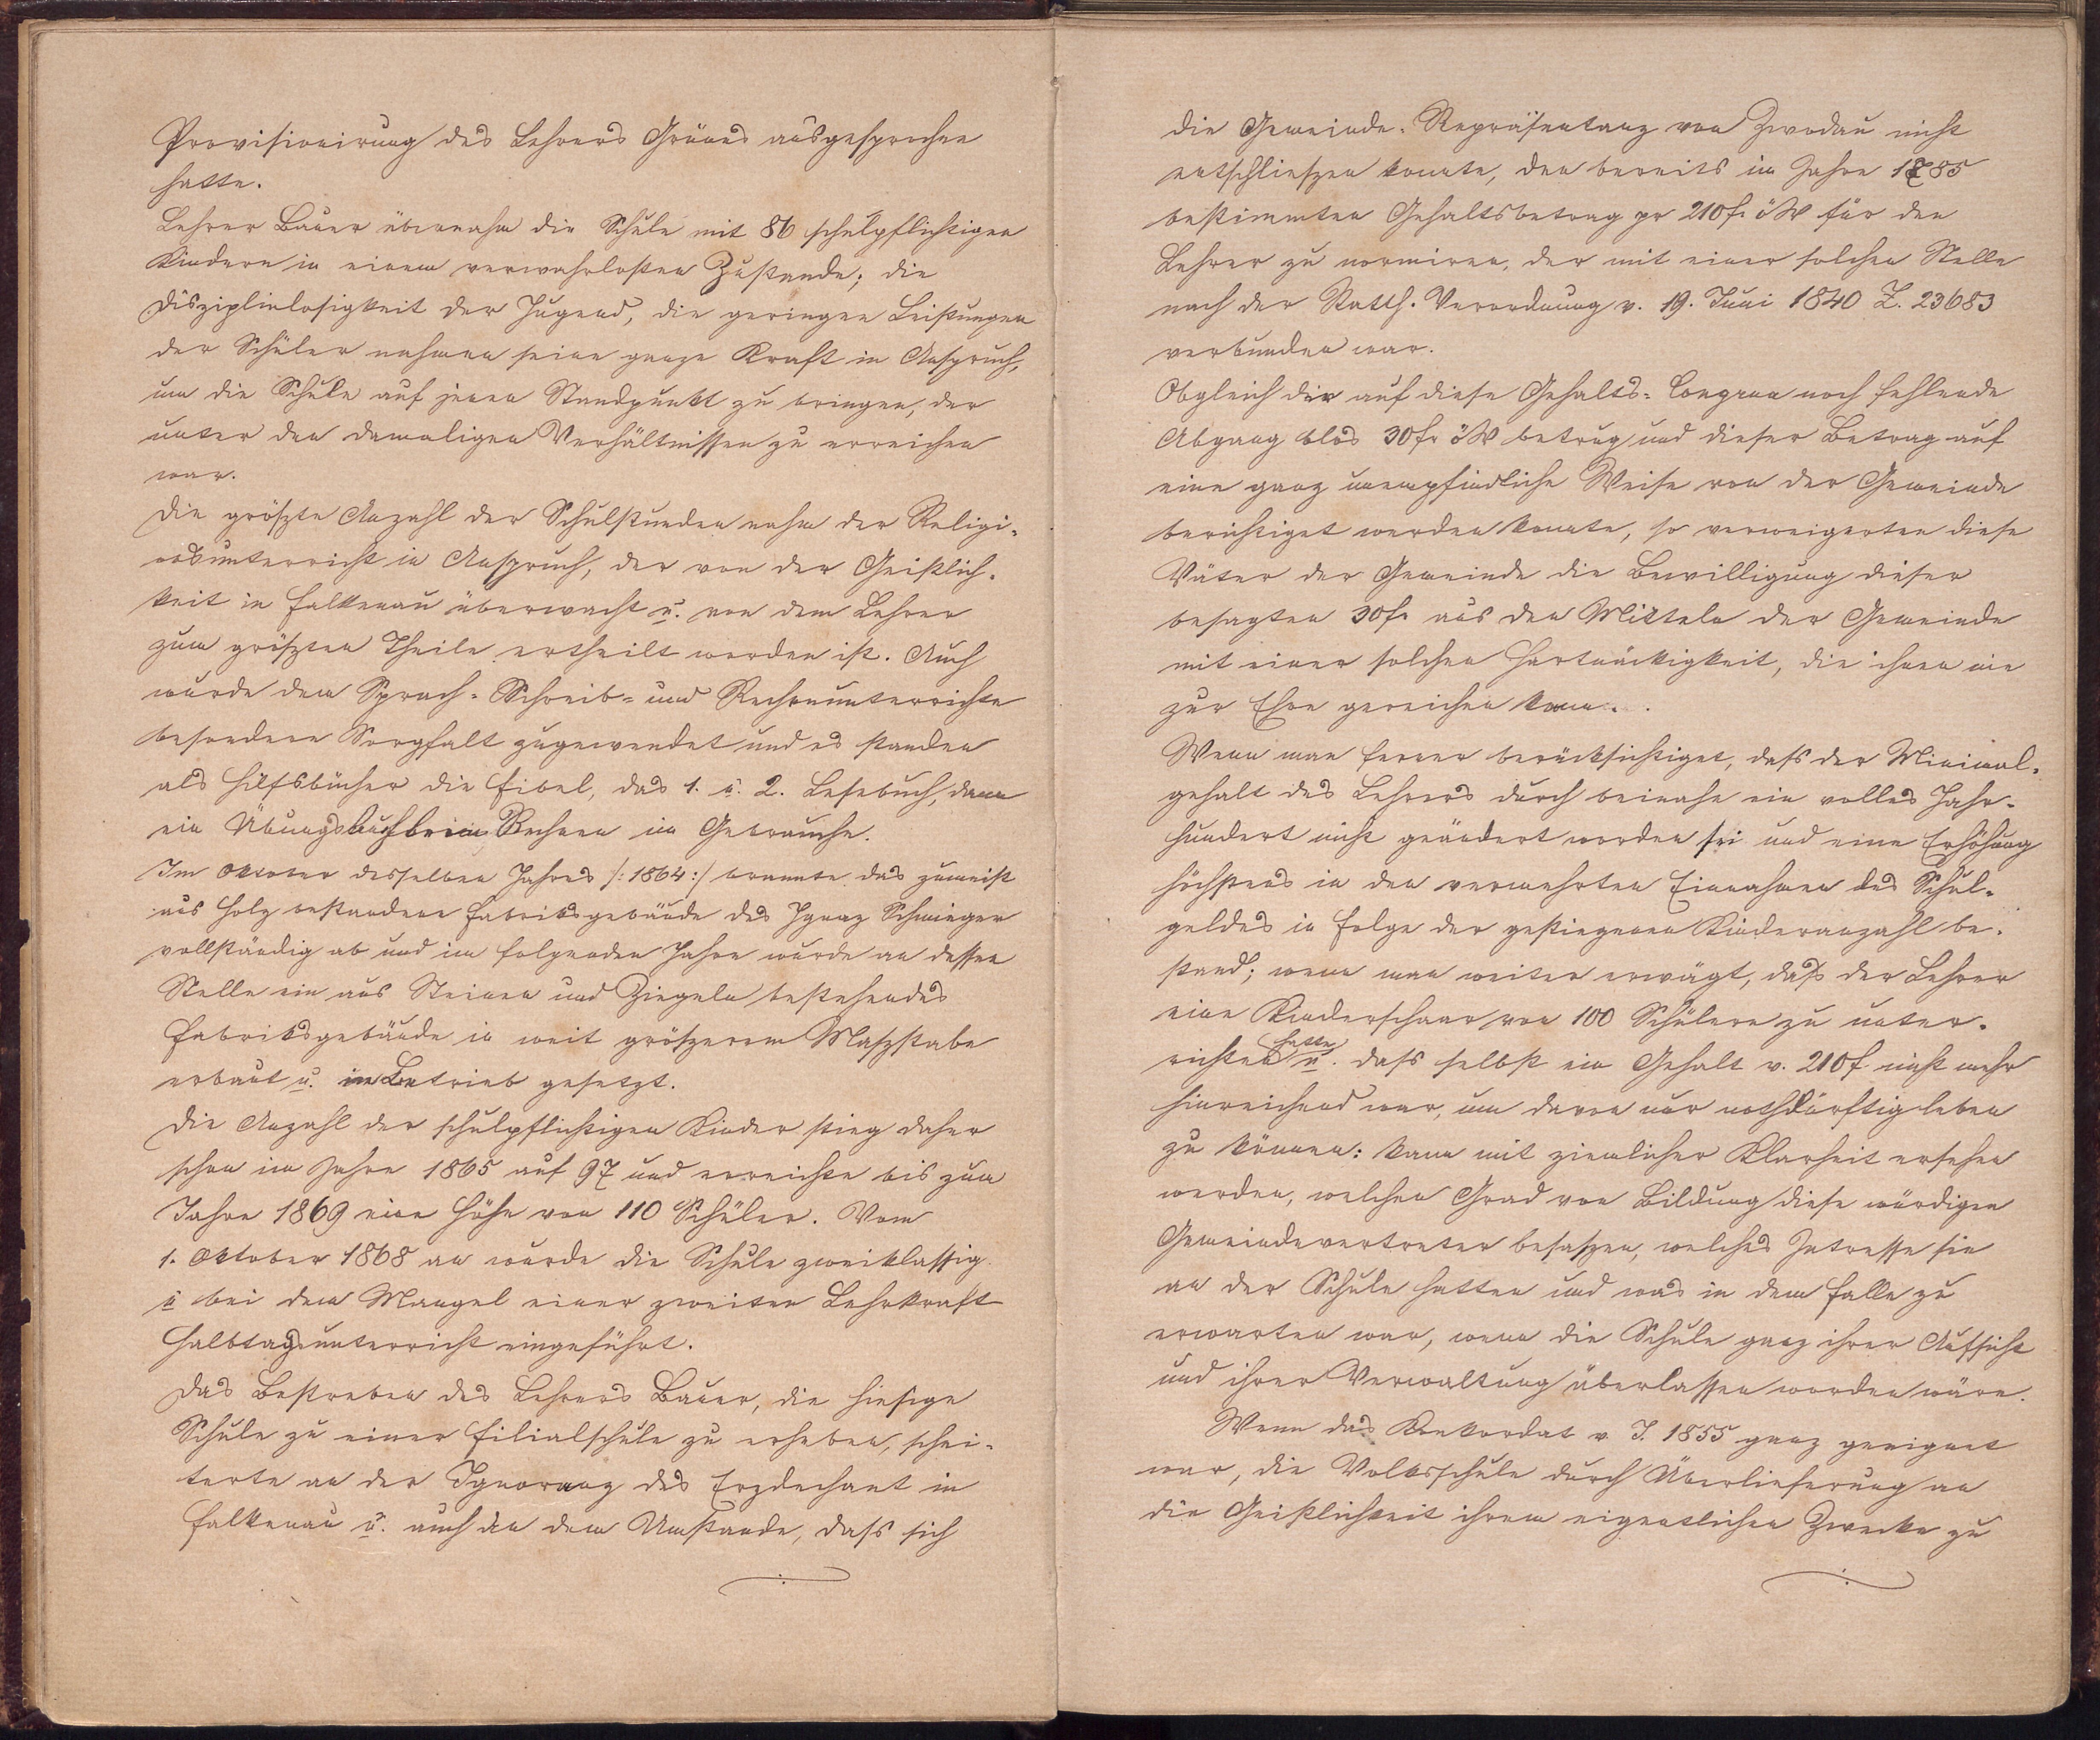 Provisionirung des Lehrers Grünes ausgesprochen
hatte.
Lehrer Bauer übernahm die Schule mit 86 schulpflichtigen
Kindern in einem verwahrlosten Zustande; die
Disziplinlosigkeit der Jugend, die geringen Leistungen
der Schüler nahmen seine ganze Kraft in Anspruch,
um die Schule auf jenen Standpunkt zu bringen, der
unter den damaligen Verhältnissen zu erreichen
war.
Die größzte Anzahl der Schulstunden nahm der Religi-
onsunterricht in Anspruch, der von der Geistlich-
keit in Falkenau überwacht u. von dem Lehrer
zum größzten Theile ertheilt worden ist. Auch
wurde dem Sprach- Schreib- und Rechnunterrichte
besondere Sorgfalt zugewendet und es standen
als Hilfsbücher die Fibel, das 1. u. 2. Lesebuch, dann
ein Übungsbuch beim Rechnen im Gebrauche.
Im Oktober desselben Jahres /: 1864 :/ brannte das zumeist
aus Holz bestandene Fabriksgebäude des Ignaz Schmieger
vollständig ab und im folgenden Jahre wurde an dessen
Stelle ein aus Steinen und Ziegeln bestehendes
Fabriksgebäude in weit größzerem Maszstabe
erbaut u. in Betrieb gesetzt.
Die Anzahl der schulpflichtigen Kinder stieg daher
schon im Jahre 1865 auf 97 und erreichte bis zum
Jahre 1869 eine Höhe von 110 Schüler. Vom
1. Oktober 1868 an wurde die Schule zweiklassig
u bei dem Mangel einer zweiten Lehrkraft
Halbtagsunterricht eingeführt.
Das Bestreben des Lehrers Bauer, die hiesige
Schule zu einer Filialschule zu erheben, schei-
terte an der Ignoranz des Erzdechant in
Falkenau u. auch an dem Umstande, dass sich
die Gemeinde-Repräsentanz von Zwodau nicht
entschlieszen konnte, den bereits im Jahre 1785
bestimmten Gehaltsbetrag pr 210 fr öW für den
Lehrer zu normiren, der mit einer solchen Stelle
nach der Statth. Verordnung v. 19. Juni 1840 Z. 23683
verbunden war.
Obgleich der auf diese Gehalts-Congrua noch fehlende
Abgang blos 30 fr öW betrug und dieser Betrag auf
eine ganz unempfindliche Weise von der Gemeinde
berichtiget werden konnte, so verweigerten diese
Väter der Gemeinde die Bewilligung dieser
besagten 30 fr aus den Mitteln der Gemeinde
mit einer solchen Hartnäckigkeit, die ihnen nie
zur Ehre gereichen kann.
Wenn man ferner berücksichtiget, dass der Minimal-
gehalt des Lehrers durch beinahe ein volles Jahr-
hundert nicht geändert worden sei und eine Erhöhung
höchstens in den vermehrten Einnahmen des Schul-
geldes in Folge der gestiegenen Kinderanzahl be-
stand; wenn man weiter erwägt, dass der Lehrer
eine Kinderschaar von 100 Schülern zu unter-
richten hatte u. dass selbst ein Gehalt v. 210 f nicht mehr
hinreichend war, um davon nur nothdürftig leben
zu können: kann mit ziemlicher Klarheit ersehen
werden, welchen Grad von Bildung diese würdigen
Gemeindevertreter besaszen, welches Intresse sie
an der Schule hatten und was in dem Falle zu
erwarten war, wenn die Schule ganz ihrer Aufsicht
und ihrer Verwaltung überlassen worden wäre.
Wenn das Konkordat v. J. 1855 ganz geeignet
war, die Volksschule durch Überlieferung an
die Geistlichkeit ihrem eigentlichen Zwecke zu